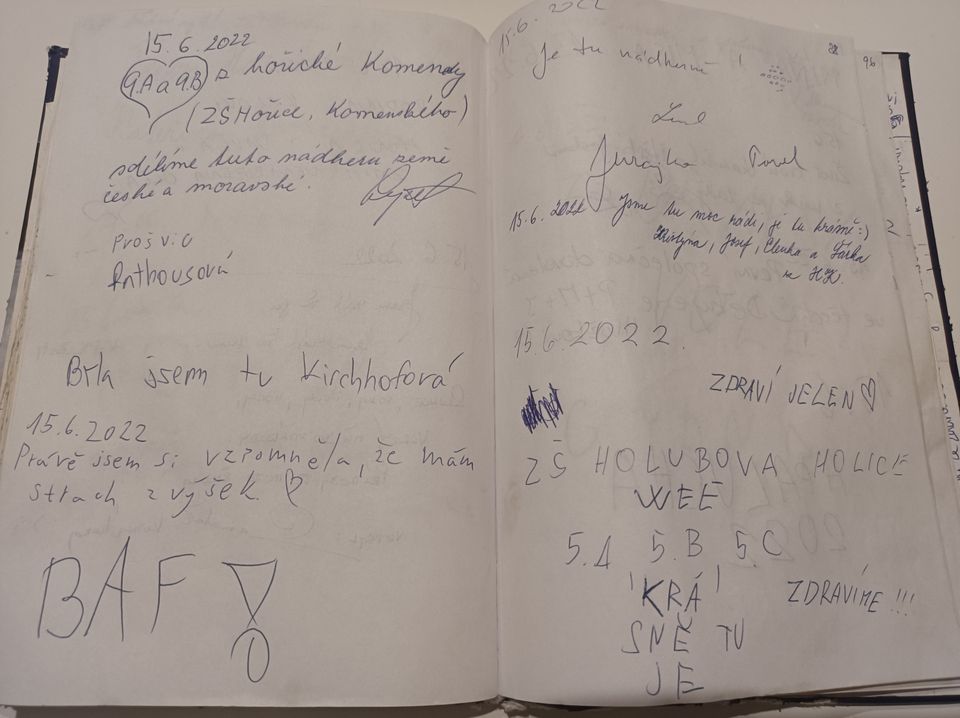 15.6.2022
9.A a 9.B z hořické Komendy
(ZŠ Hořice, Komenského)
sdílíme tuto nádheru země
české a moravské.
Prošvic
Anthousová
Byla jsem tu Kirchhofová
15.6.2022
Právě jsem si vzpomněla, že mám
strach z výšek
BAF!
15.6.2022
Je tu nádherně!
Jurajka Pavel
15.6.2022 Jsme tu moc rádi, je tu krásně :)
Kristýna, Josef, Elenka a Šárka
z HK.
15.6.2022.
ZDRAVÍ JELEN
ZŠ HOLUBOVA HOLICE
WEE
5.A 5.B 5.C
'KRÁ'
ZDRAVÍME!!!
SNĚ TU
JE
96